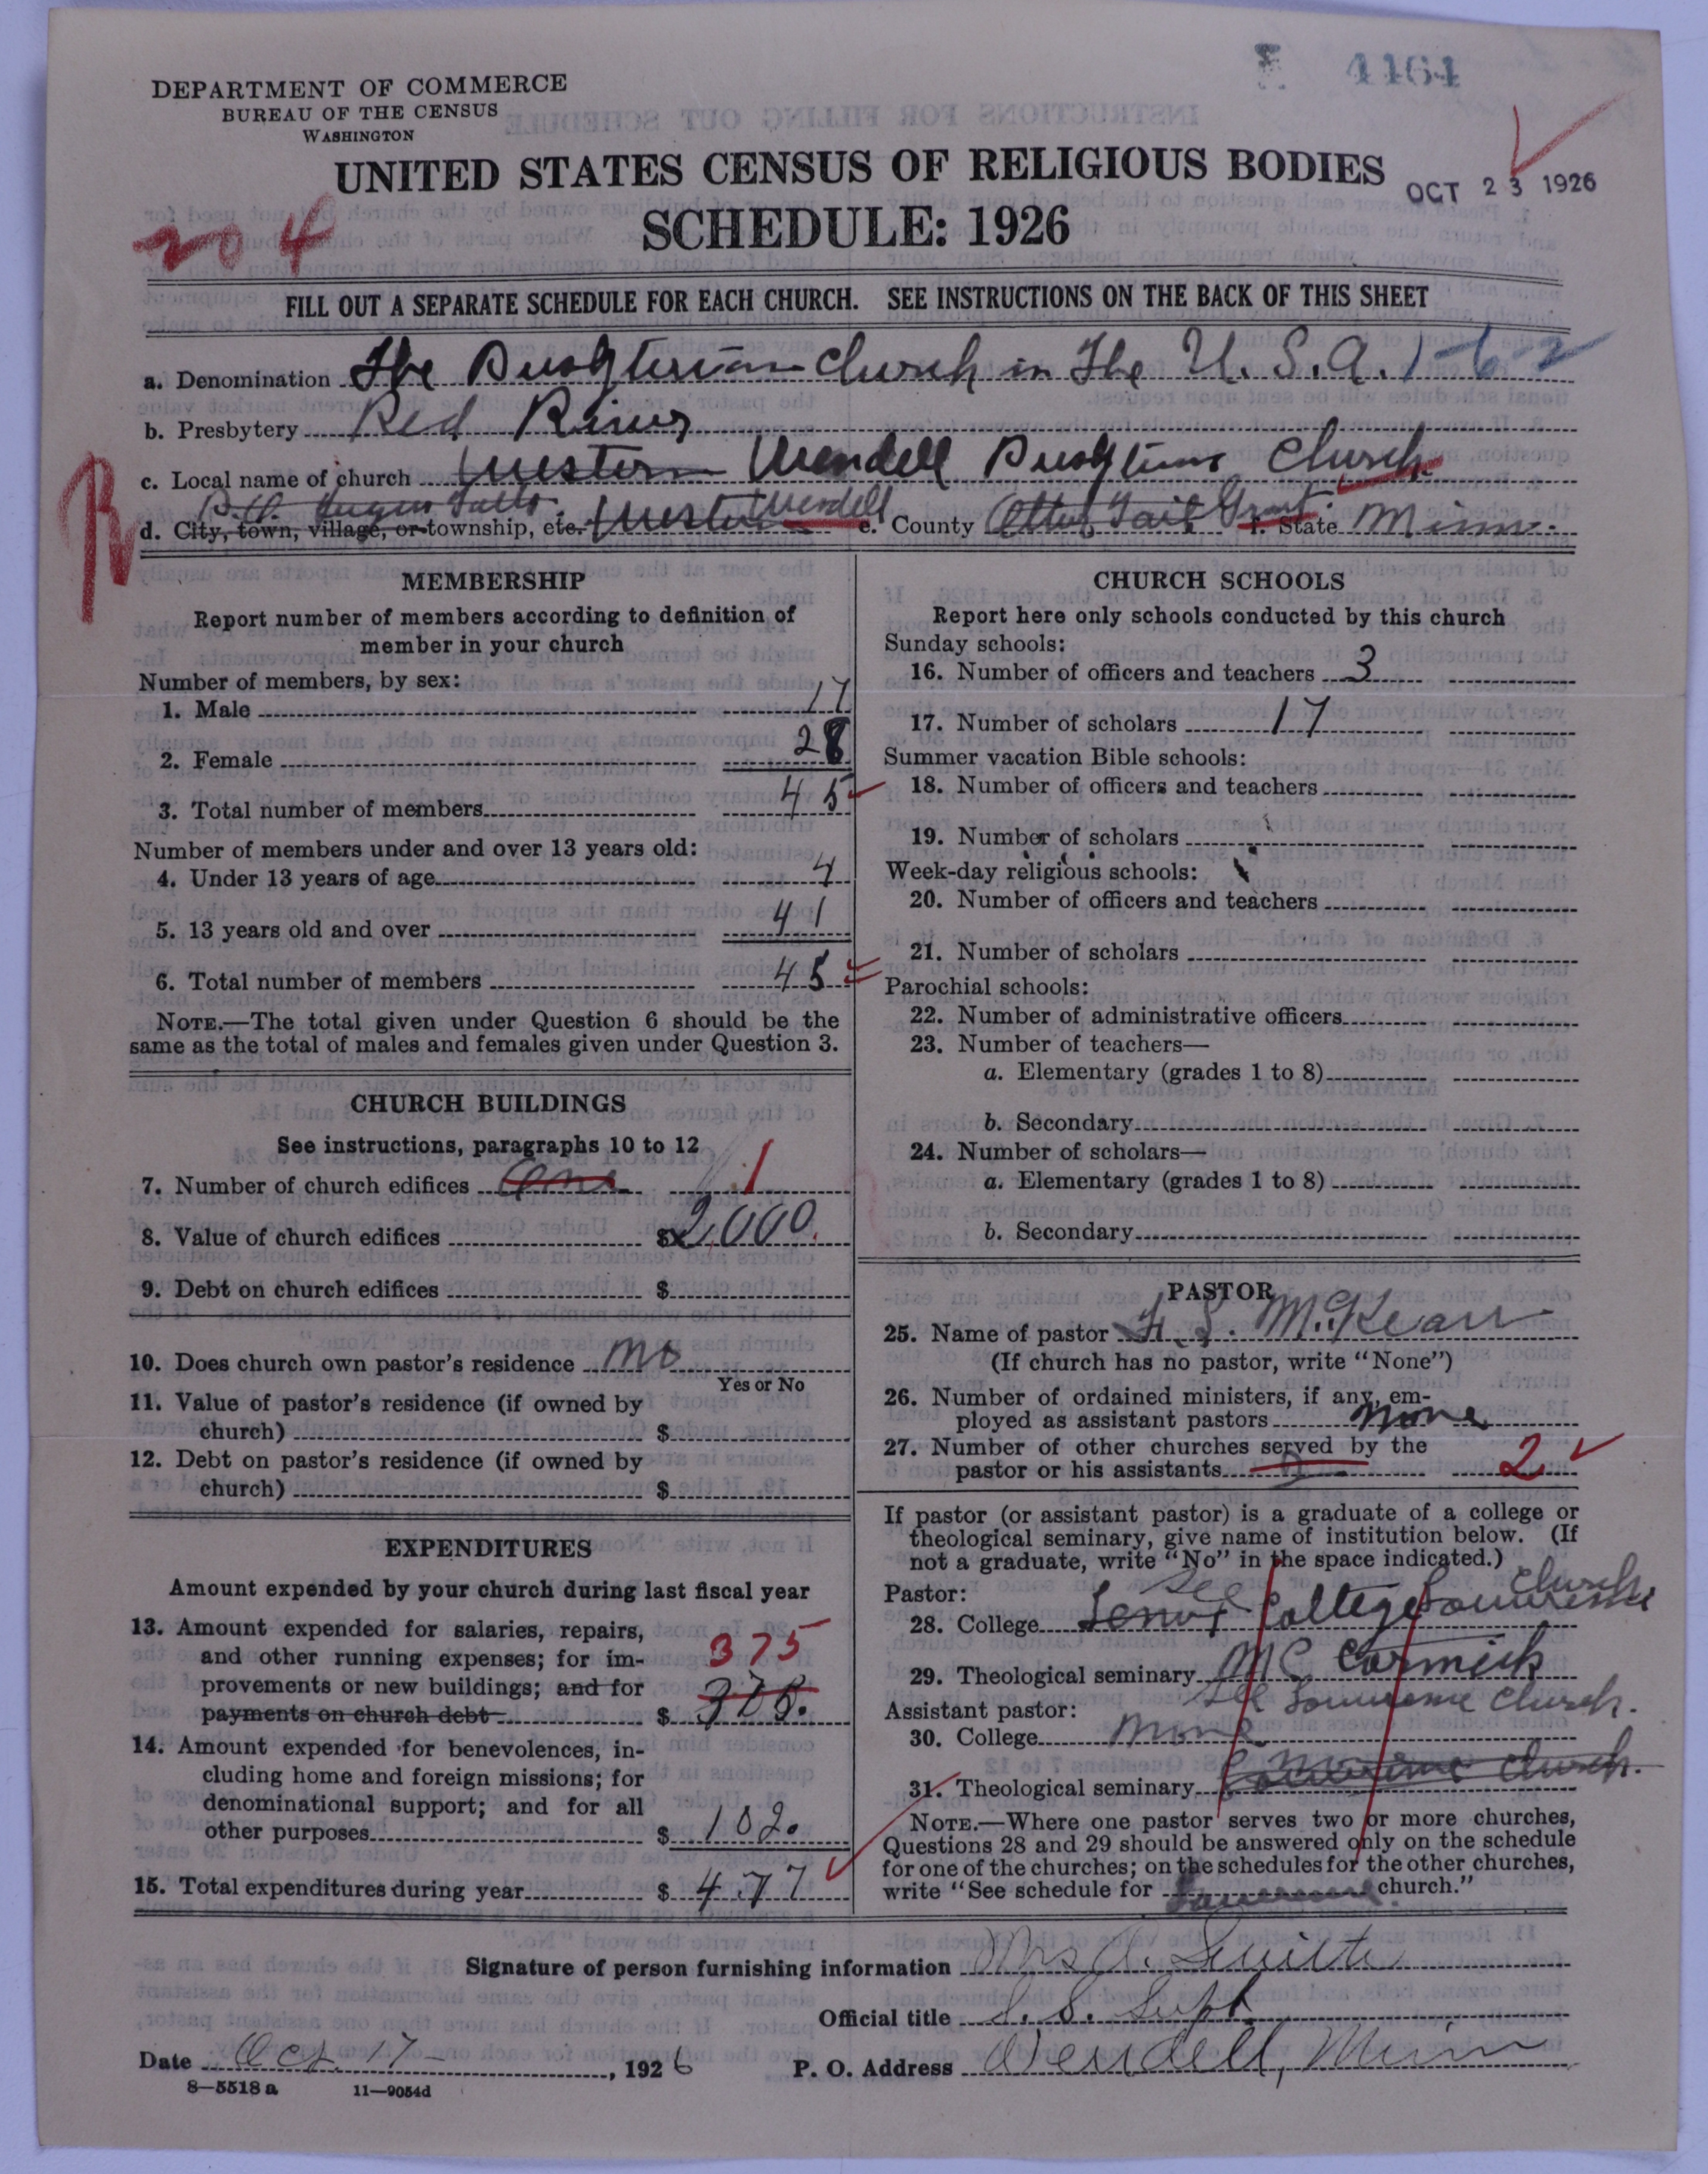 4464
DEPARTMENT OF COMMERCE
BUREAU OF THE CENSUS
WASHINGTON
UNITED STATES CENSUS OF RELIGIOUS BODIES
OCT 23 1926
SCHEDULE: 1926
204
FILL OUT A SEPARATE SCHEDULE FOR EACH CHURCH. SEE INSTRUCTIONS ON THE BACK OF THIS SHEET
a. Denomination The Presbyterian Church in The U.S.A. 1-6-2
b. Presbytery Red River
c. Local name of church Western Wendell Presbyterian Church
R
P.O. Fergus Falls Wendell
d. City, town, village, or township, etc. Western e. County Otter Tail Grant f. State Minn.
MEMBERSHIP
Report number of members according to definition of
member in your church
Number of members, by sex:
1. Male 17
2. Female 28
3. Total number of members 45
Number of members under and over 13 years old:
4. Under 13 years of age 4
5. 13 years old and over 41
6. Total number of members 45
NOTE.—The total given under Question 6 should be the
same as the total of males and females given under Question 3.
CHURCH BUILDINGS
See instructions, paragraphs 10 to 12
7. Number of church edifices One 1
8. Value of church edifices $ 2,000.
9. Debt on church edifices $
10. Does church own pastor's residence No
Yes or No
11. Value of pastor's residence (if owned by
church) $
12. Debt on pastor's residence (if owned by
church) $
EXPENDITURES
Amount expended by your church during last fiscal year
13. Amount expended for salaries, repairs,
and other running expenses; for im- 375
provements or new buildings; and for
payments on church debt $ 375.
14. Amount expended for benevolences, in-
cluding home and foreign missions; for
denominational support; and for all
other purposes $ 102.
15. Total expenditures during year $ 477
CHURCH SCHOOLS
Report here only schools conducted by this church
Sunday schools:
16. Number of officers and teachers 3
17. Number of scholars 17
Summer vacation Bible schools:
18. Number of officers and teachers
19. Number of scholars
Week-day religious schools:
20. Number of officers and teachers
21. Number of scholars
Parochial schools:
22. Number of administrative officers
23. Number of teachers—
a. Elementary (grades 1 to 8)
b. Secondary
24. Number of scholars—
a. Elementary (grades 1 to 8)
b. Secondary
PASTOR
25. Name of pastor McKean
(If church has no pastor, write "None")
26. Number of ordained ministers, if any, em-
ployed as assistant pastors None
27. Number of other churches served by the
pastor or his assistants 2
If pastor (or assistant pastor) is a graduate of a college or
theological seminary, give name of institution below. (If
not a graduate, write "No" in the space indicated.)
Pastor: See Church
28. College Lenox College Lawrence
29. Theological seminary McCormick
See Lawrence Church.
Assistant pastor:
30. College None
31. Theological seminary Lawrence Church.
NOTE.—Where one pastor serves two or more churches,
Questions 28 and 29 should be answered only on the schedule
for one of the churches; on the schedules for the other churches,
write "See schedule for Lawrence church."
Signature of person furnishing information Mrs A.
Official title S. S. Supt.
Date Oct. 17 - , 1926 P. O. Address Wendell, Minn
8—5518 a 11—9054d